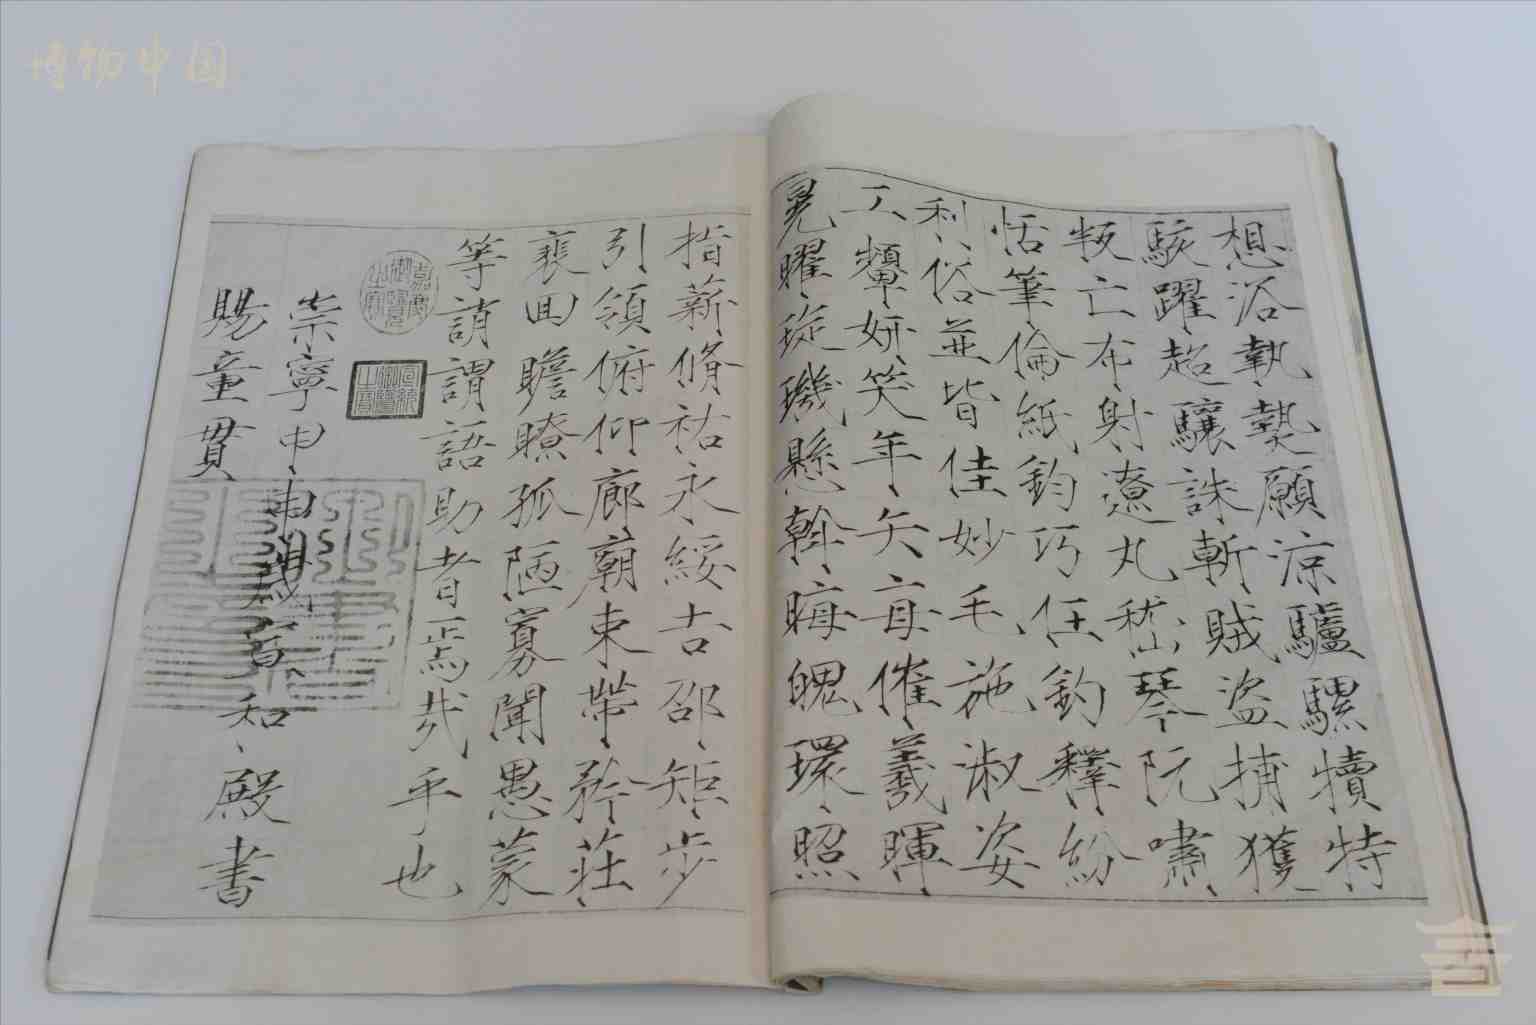 博物中国
想浴執熱願涼驢騾犢特
駭躍超驤誅斬賊盜捕獲
叛亡布射遼丸嵇琴阮嘯
恬筆倫紙鈞巧任釣釋紛
利俗並皆佳妙毛施淑姿
工顰妍笑年矢每催羲暉
晃曜琁璣懸斡晦魄環照
指薪脩祜永綏吉邵矩步
引領俯仰廊廟束帶矜莊
裵回瞻瞭孤陋寡聞愚蒙
等誚謂語助者焉哉乎也
嘉慶御覽之寶
宣統御覽之寶
崇寧甲申歲宣和殿書
賜童貫